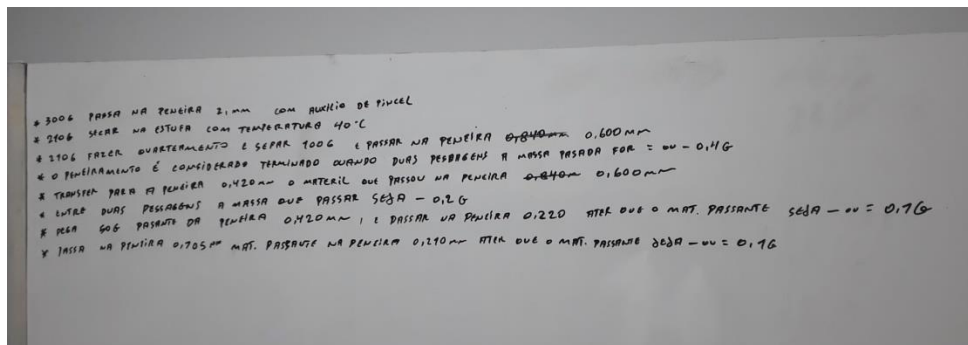 * 300G PASSA NA PENEIRA 2, mm COM AUXILIO DE PINCEL
* 210G SECAR NA ESTUFA COM TEMPERATURA 40°C
* 210G FAZER QUARTEAMENTO E SEPAR 100G E PASSAR NA PENEIRA 0,840mm 0,600mm
* O PENEIRAMENTO É CONSIDERADO TERMINADO QUANDO DUAS PESSAGENS A MASSA PASADA FOR = OU - 0,4G
* TRANSFER PARA A PENEIRA 0,420mm O MATERIL QUE PASSOU NA PENEIRA 0,840m 0,600mm
* ENTRE DUAS PESSAGENS A MASSA QUE PASSAR SEJA - 0,2G
* PEGA 60G PASANTE DA PENEIRA 0,420mm, E PASSAR NA PENEIRA 0,220 ATER QUE O MAT. PASSANTE SEJA - OU = 0,1G
* PASSA NA PENEIRA 0,105mm MAT. PASSANTE NA PENEIRA 0,210mm ATER QUE O MAT. PASSANTE SEJA - OU = 0,1G